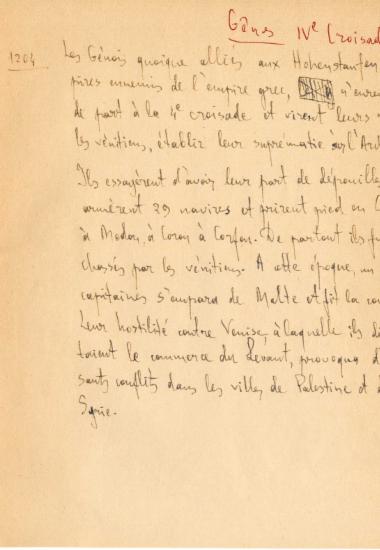 Gênes IVe Croisad
1204 Les Génois quoique alliés aux Hohenstaufen
pires ennemis de l'empire grec, n'eure
de part à la 4e croisade et virent leurs
les vénitiens, établir leur suprématie sur l'Ar
Ils essayèrent d'avoir leur part de dépouille
armèrent 29 navires et prirent pied en C
à Modon, à Coron, à Corfou. De partout ils fu
chassés par les vénitiens. A cette époque, un
capitaines s'empara de Malte et fit la co
Leur hostilité contre Venise, à laquelle ils di
taient le commerce du Levant, provoqua d
sants conflits dans les villes de Palestine et d
Syrie.